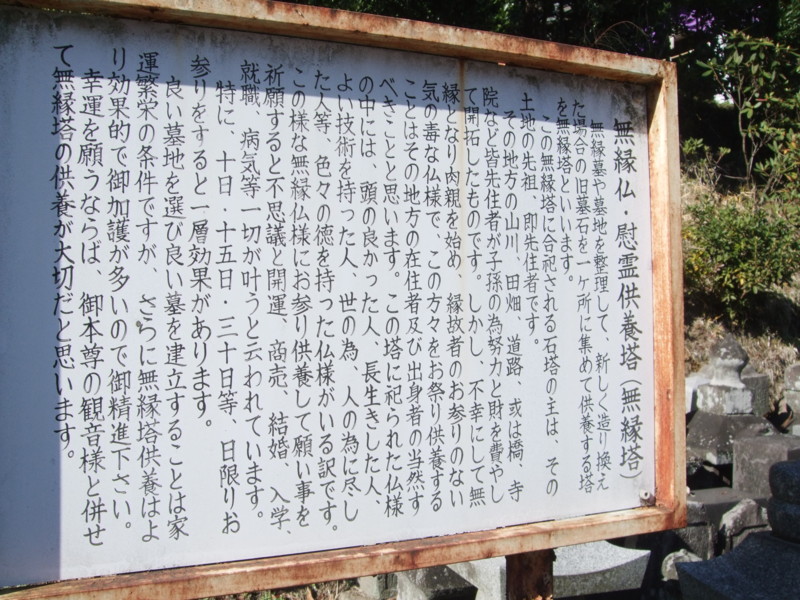 無縁仏・慰霊供養塔(無縁塔)
無縁墓や墓地を整理して、新しく造り換え
た場合の旧墓石を一ヶ所に集めて供養する塔
を無縁塔といいます。
この無縁塔に合祀される石塔の主は、その
土地の先祖、即先住者です。
その地方の山川、田畑、道路、或は橋、寺
院など皆先住者が子孫の為努力と財を費やし
て開拓したものです。しかし、不幸にして無
縁となり肉親を始め、縁故者のお参りのない
気の毒な仏様で、この方々をお祭り供養する
ことはその地方の在住者及び出身者の当然す
べきことと思います。この塔に祀られた仏様
の中には、頭の良かった人、長生きした人、
よい技術を持った人、世の為、人の為に尽し
た人等、色々の徳を持った仏様がいる訳です。
この様な無縁仏様にお参り供養して願い事を
祈願すると不思議と開運、商売、結婚、入学、
就職、病気等一切が叶うと云われています。
特に、十日・十五日・三十日等、日限りお
参りをすると一層効果があります。
良い墓地を選び良い墓を建立することは家
運繁栄の条件ですが、さらに無縁塔供養はよ
り効果的で御加護が多いので御精進下さい。
幸運を願うならば、御本尊の観音様と併せ
て無縁塔の供養が大切だと思います。